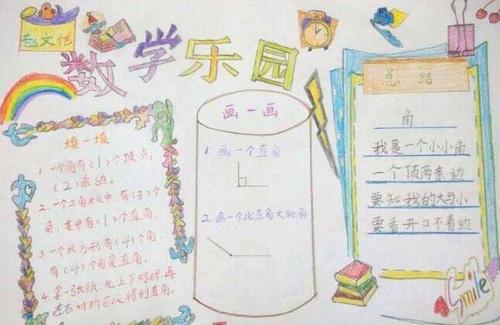 数学乐园
填一填
1.一个角有(1)个顶点,
(2)条边。
2.一个三角板中有(3)个
角,其中有(1)个直角
3.一个长方形有(4)个角
有(4)个角是直角。
4.拿一张纸,先上下对折,再
左右对折可以得到直角。
画一画
1.画一个直角
2.画一个比直角大的角
总结
角
我是一个小小角
一个顶两条边
要知我的大与小
要看开口不看边
Smile